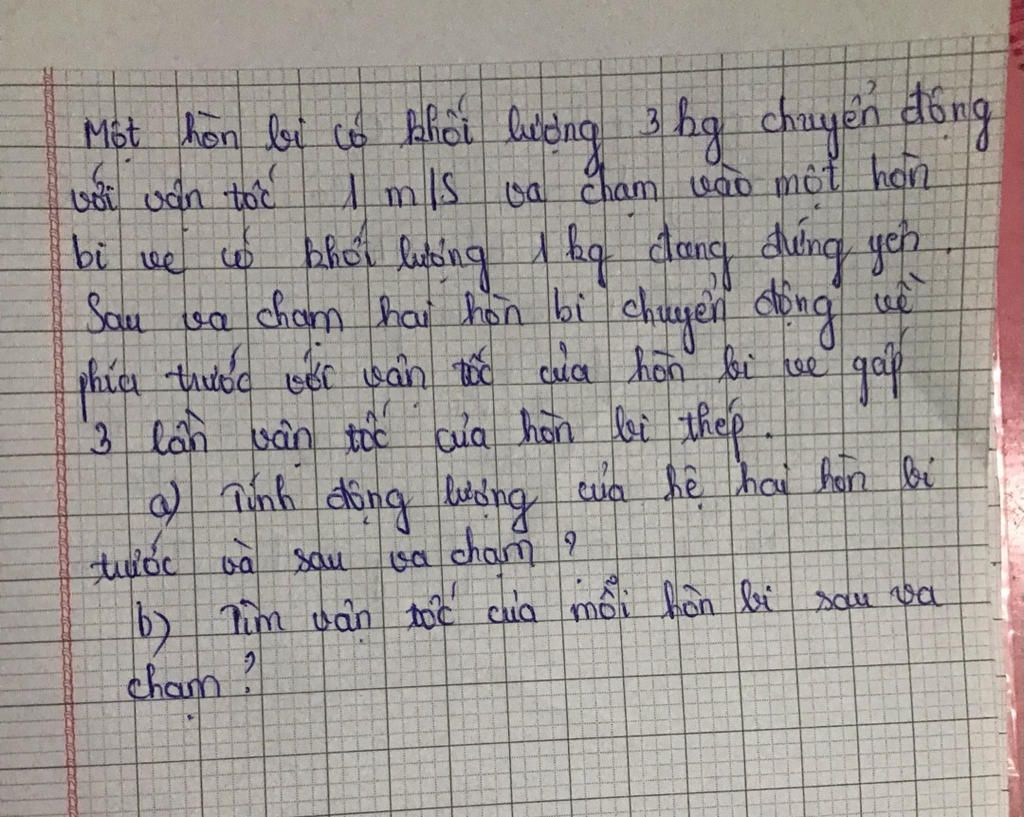 Một hòn bi có khối lượng 3 kg chuyển động
với vận tốc 1 m/s va chạm vào một hòn
bi ve có khối lượng 1 kg đang đứng yên.
Sau va chạm hai hòn bi chuyển động về
phía trước với vận tốc của hòn bi ve gấp
3 lần vận tốc của hòn bi thép.
a) Tính động lượng của hệ hai hòn bi
trước và sau va chạm?
b) Tìm vận tốc của mỗi hòn bi sau va
chạm?